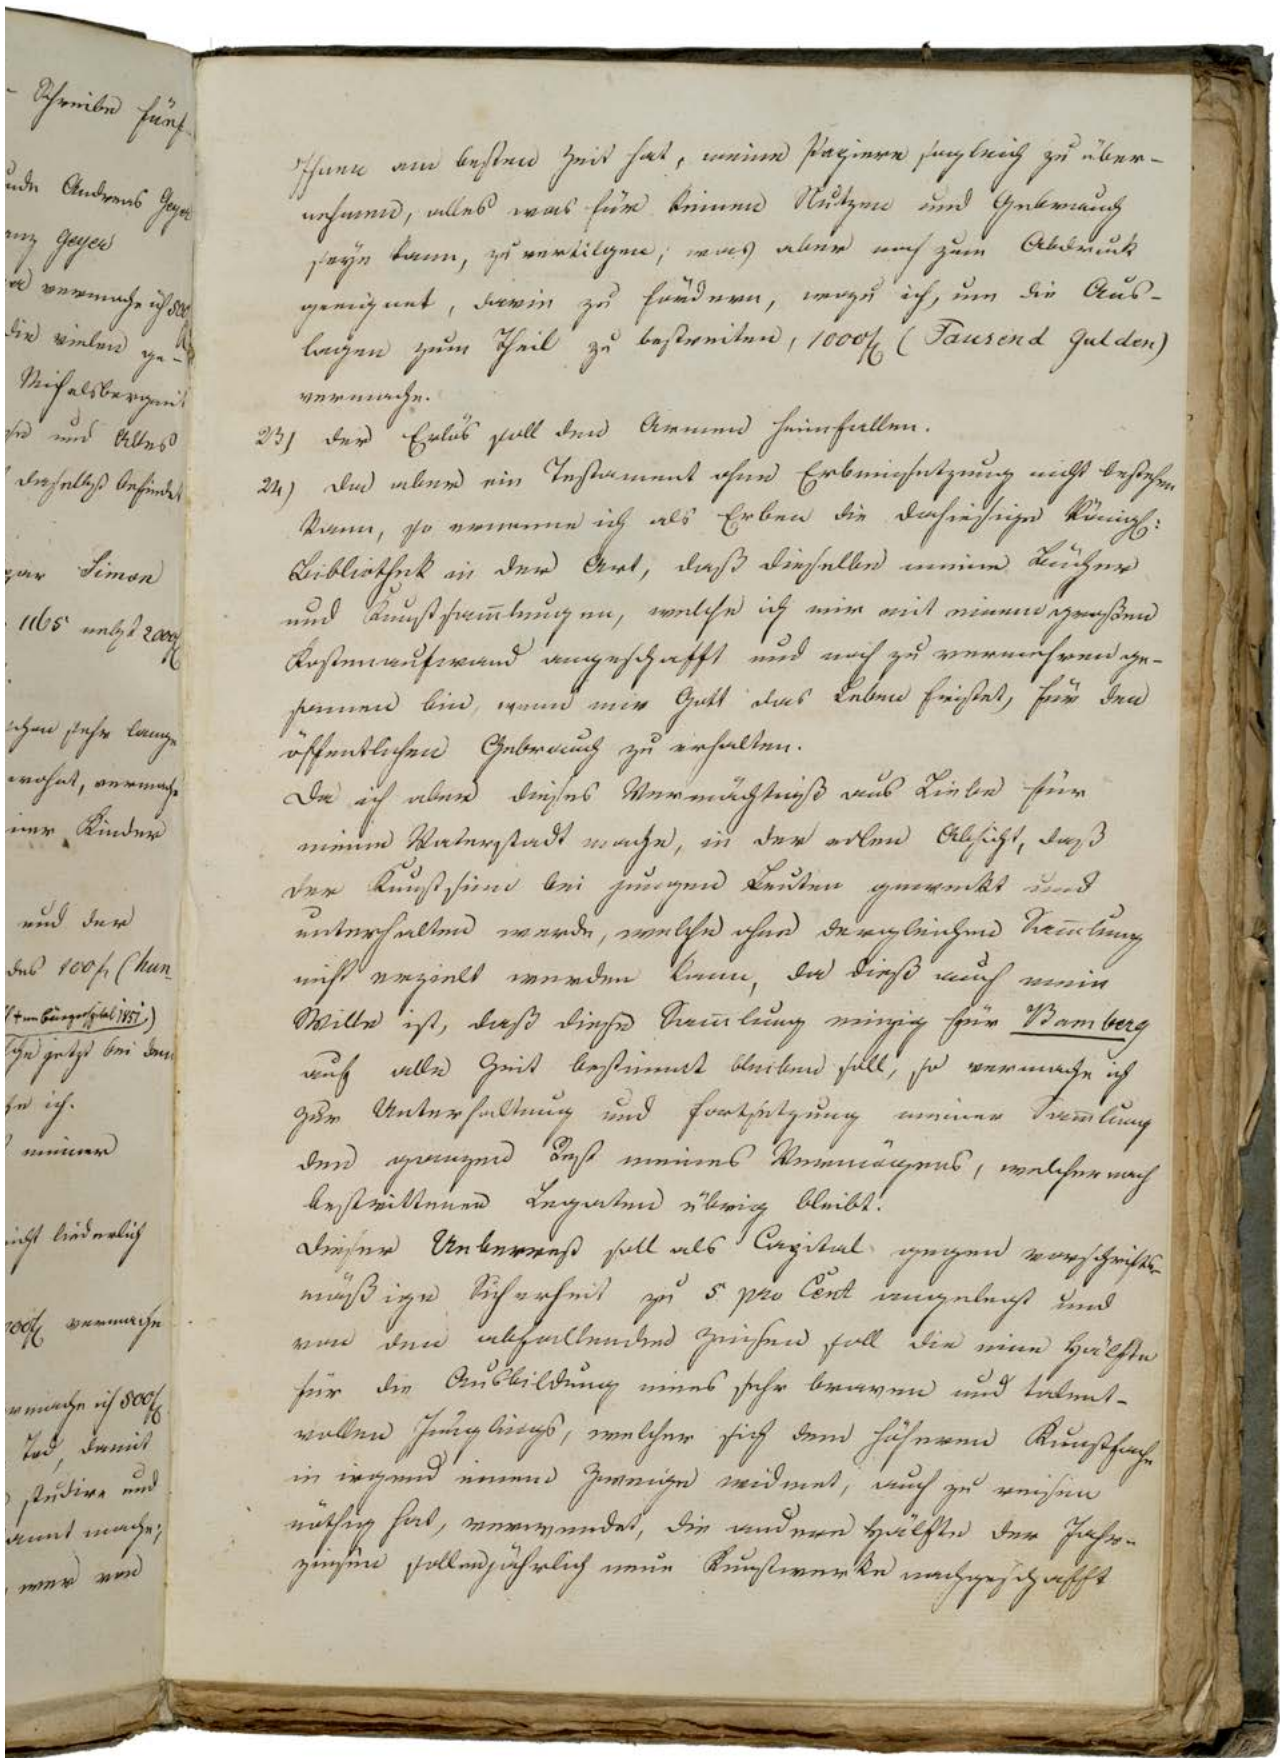 Schreibe fünf-
Andreas Geyer
Geyer
vermache ich 500
die vielen ge-
Michelsberg mit
und Altes
daselbst befindet
Simon
1165 nebst 2000 fl
sehr lange
wohnt, vermache
Kinder
und der
des 100 fl (hun-
im Bürgerspital 1851.)
jetzt bei dem
ich.
meiner
nicht liederlich
vermache
vermache ich 500 fl
Tod, damit
studire und
mache;
wer von
Ihnen am besten Zeit hat, meine Papiere sogleich zu über-
nehmen, alles was für keinen Nutzen und Gebrauch
seyn kann, zu vertilgen; was aber noch zum Abdruck
geeignet, darin zu fördern, wozu ich, um die Aus-
lagen zum Theil zu bestreiten, 1000 fl (Tausend Gulden)
vermache.
23) der Erlös soll den Armen heimfallen.
24) Da aber ein Testament ohne Erbeinsetzung nicht bestehen
kann, so ernenne ich als Erben die dahiesige Königl:
Bibliothek in der Art, daß dieselbe meine Bücher
und Kunstsam̅lungen, welche ich mir mit einem großen
Kostenaufwand angeschafft und noch zu vermehren ge-
sonnen bin, wenn mir Gott das Leben fristet, für den
öffentlichen Gebrauch zu erhalten.
Da ich aber dieses Vermächtniß aus Liebe für
meine Vaterstadt mache, in der edlen Absicht, daß
der Kunstsinn bei jungen Leuten geweckt und
unterhalten werde, welche ohne dergleichen Sam̅lung
nicht erzielt werden kann, da dieß auch mein
Wille ist, daß diese Sam̅lung einzig für Bamberg
auf alle Zeit bestimmt bleiben soll, so vermache ich
zur Unterhaltung und Fortsetzung meiner Sam̅lung
den ganzen Rest meines Vermögens, welcher nach
bestrittenen Legaten übrig bleibt.
Dieser Ueberrest soll als Capital gegen vorschrifts-
mäßige Sicherheit zu 5 pro Cent angelegt und
von den abfallenden Zinsen soll die eine Hälfte
für die Ausbildung eines sehr braven und talent-
vollen Jünglings, welcher sich dem höheren Kunstfache
in irgend einem Zweige widmet, auch zu reisen
nöthig hat, verwendet, die andere Hälfte der Jahr-
zinsen sollen jährlich neue Kunstwerke nachgeschafft